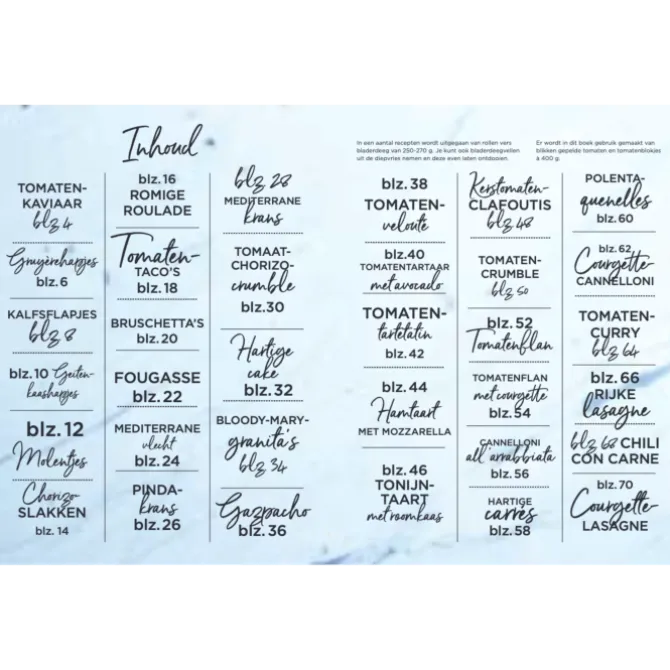 Inhoud
TOMATEN-
KAVIAAR
blz 4
Gruyèrehapjes
blz.6
KALFSFLAPJES
blz 8
blz.10 Geiten-
kaashapjes
blz.12
Molentjes
Chorizo-
SLAKKEN
blz. 14
blz.16
ROMIGE
ROULADE
Tomaten-
TACO'S
blz.18
BRUSCHETTA'S
blz.20
FOUGASSE
blz.22
MEDITERRANE
vlecht
blz.24
PINDA-
krans
blz.26
blz 28
MEDITERRANE
krans
TOMAAT-
CHORIZO-
crumble
blz.30
Hartige
cake
blz.32
BLOODY-MARY-
granita's
blz 34
Gazpacho
blz.36
In een aantal recepten wordt uitgegaan van rollen vers
bladerdeeg van 250-270 g. Je kunt ook bladerdeegvellen
uit de diepvries nemen en deze even laten ontdooien.
Er wordt in dit boek gebruik gemaakt van
blikken gepelde tomaten en tomatenblokjes
à 400 g.
blz.38
TOMATEN-
velouté
blz.40
TOMATENTARTAAR
met avocado
TOMATEN-
tartetatin
blz.42
blz.44
Hamtaart
MET MOZZARELLA
blz.46
TONIJN-
TAART
met roomkaas
Kerstomaten-
CLAFOUTIS
blz 48
TOMATEN-
CRUMBLE
blz 50
blz.52
Tomatenflan
TOMATENFLAN
met courgette
blz.54
CANNELLONI
all'arrabbiata
blz.56
HARTIGE
carrés
blz.58
POLENTA-
quenelles
blz.60
blz.62
Courgette-
CANNELLONI
TOMATEN-
CURRY
blz 64
blz.66
RIJKE
lasagne
blz 68 CHILI
CON CARNE
blz.70
Courgette-
LASAGNE